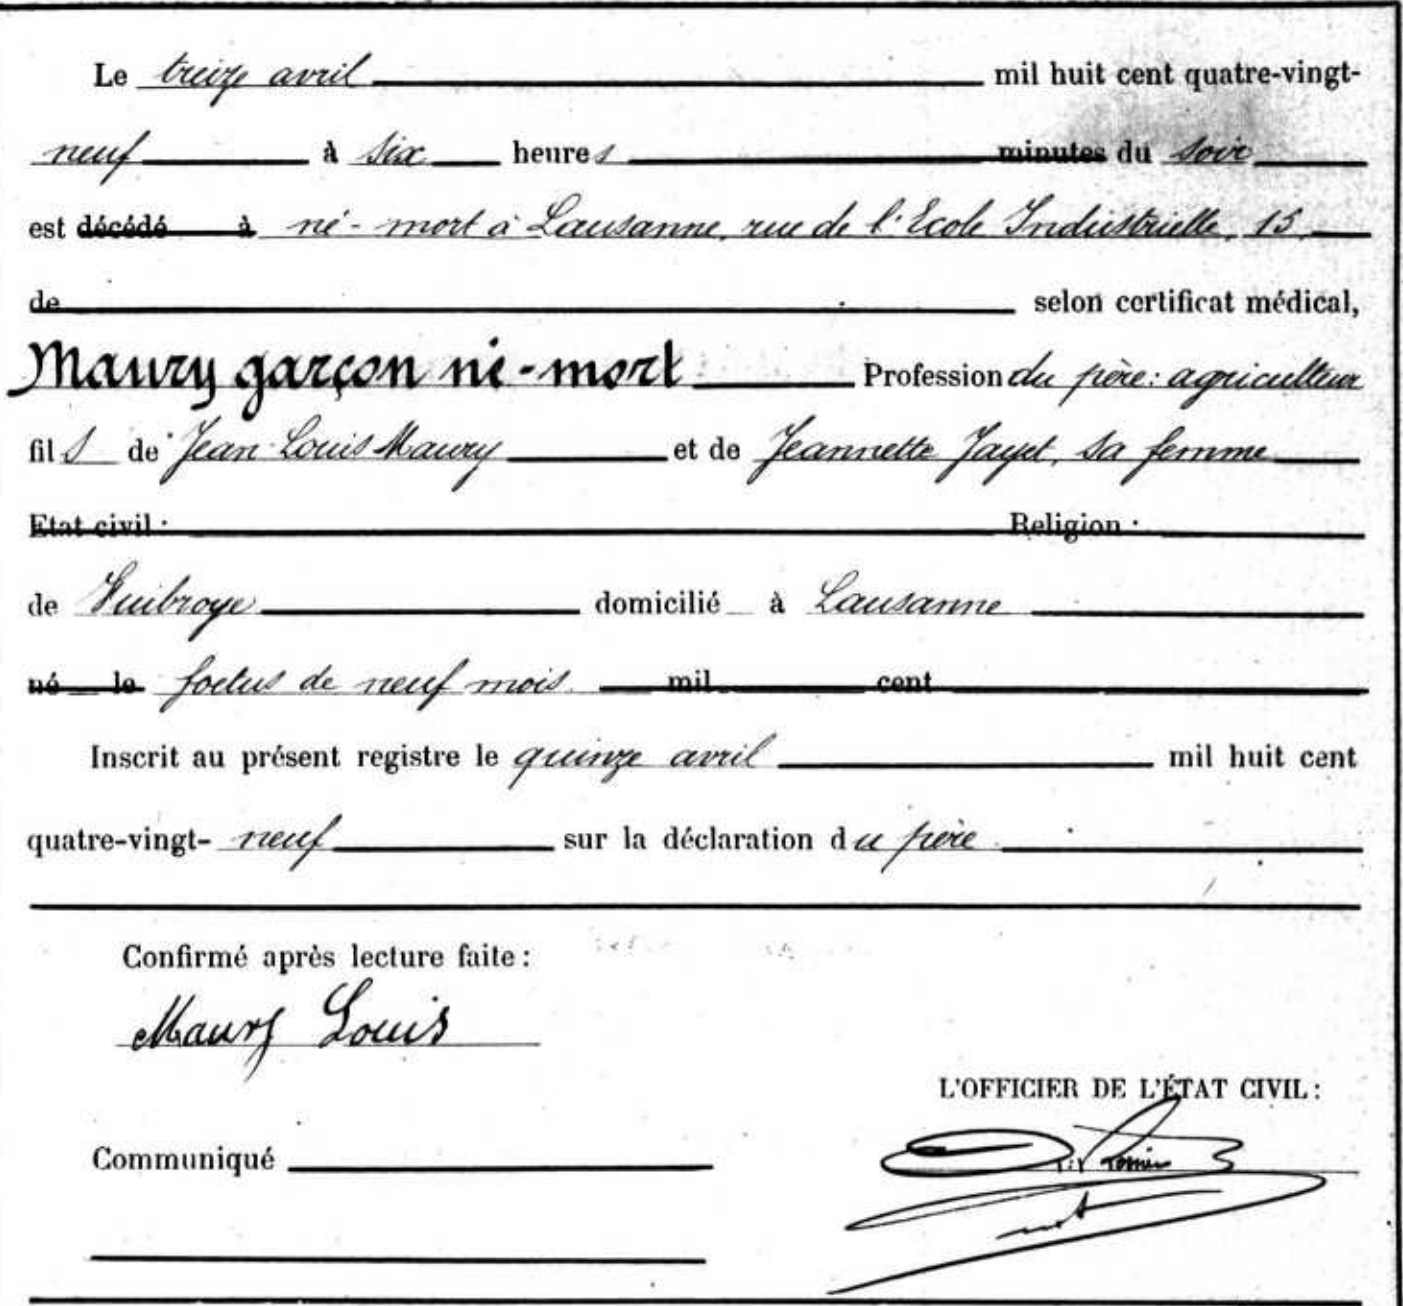 Le treize avril mil huit cent quatre-vingt-
neuf à six heures minutes du soir
est décédé à né-mort à Lausanne, rue de l'Ecole Industrielle, 15.
de selon certificat médical,
Maury garçon né-mort Profession du père: agriculteur
fils de Jean Louis Maury et de Jeannette Jayet, sa femme
Etat civil: Religion:
de Vuibroye domicilié à Lausanne
né le foetus de neuf mois. mil cent
Inscrit au présent registre le quinze avril mil huit cent
quatre-vingt-neuf sur la déclaration du père.
Confirmé après lecture faite:
Maury Louis
L'OFFICIER DE L'ÉTAT CIVIL:
Communiqué